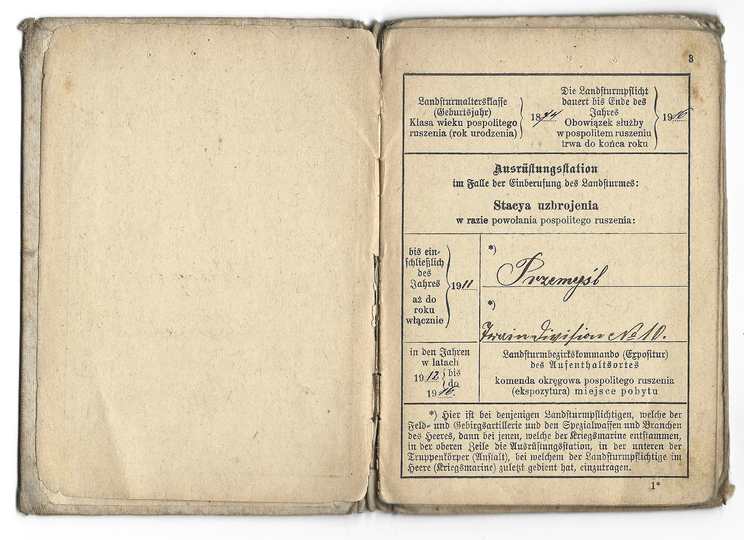 3
Landsturmaltersklasse
(Geburtsjahr)
Klasa wieku pospolitego
ruszenia (rok urodzenia)
1874
Die Landsturmpflicht
dauert bis Ende des
Jahres
Obowiązek służby
w pospolitem ruszeniu
trwa do końca roku
1916
Ausrüstungsstation
im Falle der Einberufung des Landsturmes:
Stacya uzbrojenia
w razie powołania pospolitego ruszenia:
bis ein-
schließlich
des
Jahres
aż do
roku
włącznie
1911
*)
Przemyśl
*)
Train Division No 10.
in den Jahren
w latach
1912 bis
do
1916.
Landsturmbezirkskommando (Expositur)
des Aufenthaltsortes
komenda okręgowa pospolitego ruszenia
(ekspozytura) miejsce pobytu
*) Hier ist bei denjenigen Landsturmpflichtigen, welche der
Feld- und Gebirgsartillerie und den Spezialwaffen und Branchen
des Heeres, dann bei jenen, welche der Kriegsmarine entstammen,
in der oberen Zeile die Ausrüstungsstation, in der unteren der
Truppenkörper (Anstalt), bei welchem der Landsturmpflichtige im
Heere (Kriegsmarine) zuletzt gedient hat, einzutragen.
1*